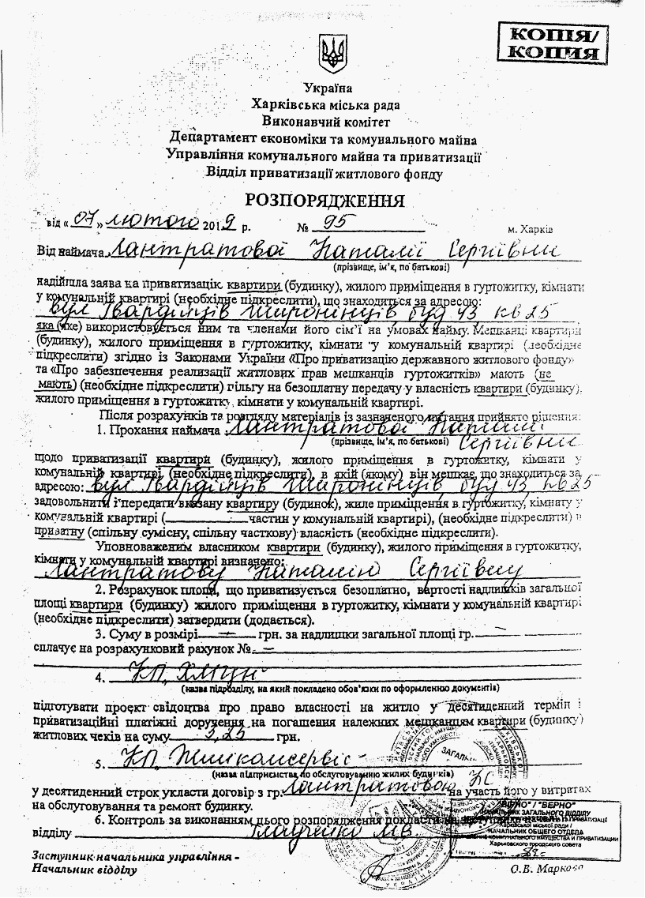 КОПІЯ/
КОПИЯ
Україна
Харківська міська рада
Виконавчий комітет
Департамент економіки та комунального майна
Управління комунального майна та приватизації
Відділ приватизації житлового фонду
РОЗПОРЯДЖЕННЯ
від « 07 » лютого 2019 р. № 95 м. Харків
Від наймача Лантратової Наталії Сергіївни
(прізвище, ім’я, по батькові)
надійшла заява на приватизацію квартири (будинку), жилого приміщення в гуртожитку, кімнати
у комунальній квартирі (необхідне підкреслити), що знаходиться за адресою:
вул Гвардійців Широнінців буд 43 кв 25
яка (яке) використовується ним та членами його сім’ї на умовах найму. Мешканці квартири
(будинку), жилого приміщення в гуртожитку, кімнати у комунальній квартирі (необхідне
підкреслити) згідно із Законами України «Про приватизацію державного житлового фонду»
та «Про забезпечення реалізації житлових прав мешканців гуртожитків» мають (не
мають) (необхідне підкреслити) пільгу на безоплатну передачу у власність квартири (будинку),
жилого приміщення в гуртожитку, кімнати у комунальній квартирі.
Після розрахунків та розгляду матеріалів із зазначеного питання прийнято рішення:
1. Прохання наймача Лантратової Наталії
(прізвище, ім’я, по батькові) Сергіївни
щодо приватизації квартири (будинку), жилого приміщення в гуртожитку, кімнати у
комунальній квартирі (необхідне підкреслити), в якій (якому) він мешкає, що знаходиться за
адресою: вул Гвардійців Широнінців, буд 43 кв 25
задовольнити і передати вказану квартиру (будинок), жиле приміщення в гуртожитку, кімнату у
комунальній квартирі ( частин у комунальній квартирі), (необхідне підкреслити) в
приватну (спільну сумісну, спільну часткову) власність (необхідне підкреслити).
Уповноваженим власником квартири (будинку), жилого приміщення в гуртожитку,
кімнати у комунальній квартирі визначено:
Лантратову Наталію Сергіївну
2. Розрахунок площі, що приватизується безоплатно, вартості надлишків загальної
площі квартири (будинку) жилого приміщення в гуртожитку, кімнати у комунальній квартирі
(необхідне підкреслити) затвердити (додається).
3. Суму в розмірі — грн. за надлишки загальної площі гр. —
сплачує на розрахунковий рахунок № —
4. КП
(назва підрозділу, на який покладено обов’язки по оформленню документів)
підготувати проект свідоцтва про право власності на житло у десятиденний термін і
приватизаційні платіжні доручення на погашення належних мешканцям квартири (будинку)
житлових чеків на суму грн.
5. КП Жилкомсервіс
(назва підприємства по обслуговуванню жилих будинків)
у десятиденний строк укласти договір з гр. Лантратовою на участь його у витратах
на обслуговування та ремонт будинку.
6. Контроль за виконанням цього розпорядження покласти на
відділу
"ВІРНО" / "ВЕРНО"
НАЧАЛЬНИК ЗАГАЛЬНОГО ВІДДІЛУ
Харківської міської ради /
НАЧАЛЬНИК ОБЩЕГО ОТДЕЛА
Харьковского городского совета
Заступник начальника управління -
Начальник відділу О.В.